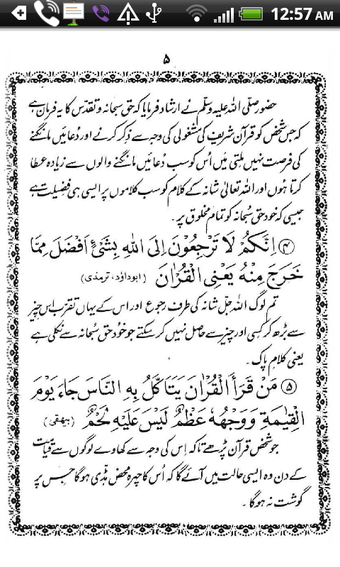 12:57 AM
۵
حضور صلی اللہ علیہ وسلم نے ارشاد فرمایا کہ حق سبحانہ و تقدس کا یہ فرمان ہے
کہ جس شخص کو قرآن شریف کی مشغولی کی وجہ سے ذکر کرنے اور دعائیں مانگنے
کی فرصت نہیں ملتی میں اُس کو سب دعائیں مانگنے والوں سے زیادہ عطا
کرتا ہوں اور اللہ تعالیٰ شانہ کے کلام کو سب کلاموں پر ایسی ہی فضیلت ہے
جیسی کہ خود حق سبحانہ کو تمام مخلوق پر۔
(۴) اِنَّكُمْ لَا تَرْجِعُوْنَ اِلَى اللهِ بِشَئْیٍ اَفْضَلَ مِمَّا
خَرَجَ مِنْهُ يَعْنِى الْقُرْاٰنَ (ابوداؤد، ترمذی)
تم لوگ اللہ جل شانہ کی طرف رجوع اور اس کے یہاں تقرب اس چیز
سے بڑھ کر کسی اور چیز سے حاصل نہیں کر سکتے جو خود حق سبحانہ سے نکلی ہے
یعنی کلام پاک۔
(۵) مَنْ قَرَأَ الْقُرْاٰنَ يَتَاَكَّلُ بِهِ النَّاسَ جَاءَ يَوْمَ
الْقِيٰمَةِ وَوَجْهُهٗ عَظْمٌ لَيْسَ عَلَيْهِ لَحْمٌ (بیہقی)
جو شخص قرآن پڑھے تاکہ اس کی وجہ سے کھاوے لوگوں سے قیامت
کے دن وہ ایسی حالت میں آئے گا کہ اُس کا چہرہ محض ہڈی ہوگا جس پر
گوشت نہ ہوگا۔